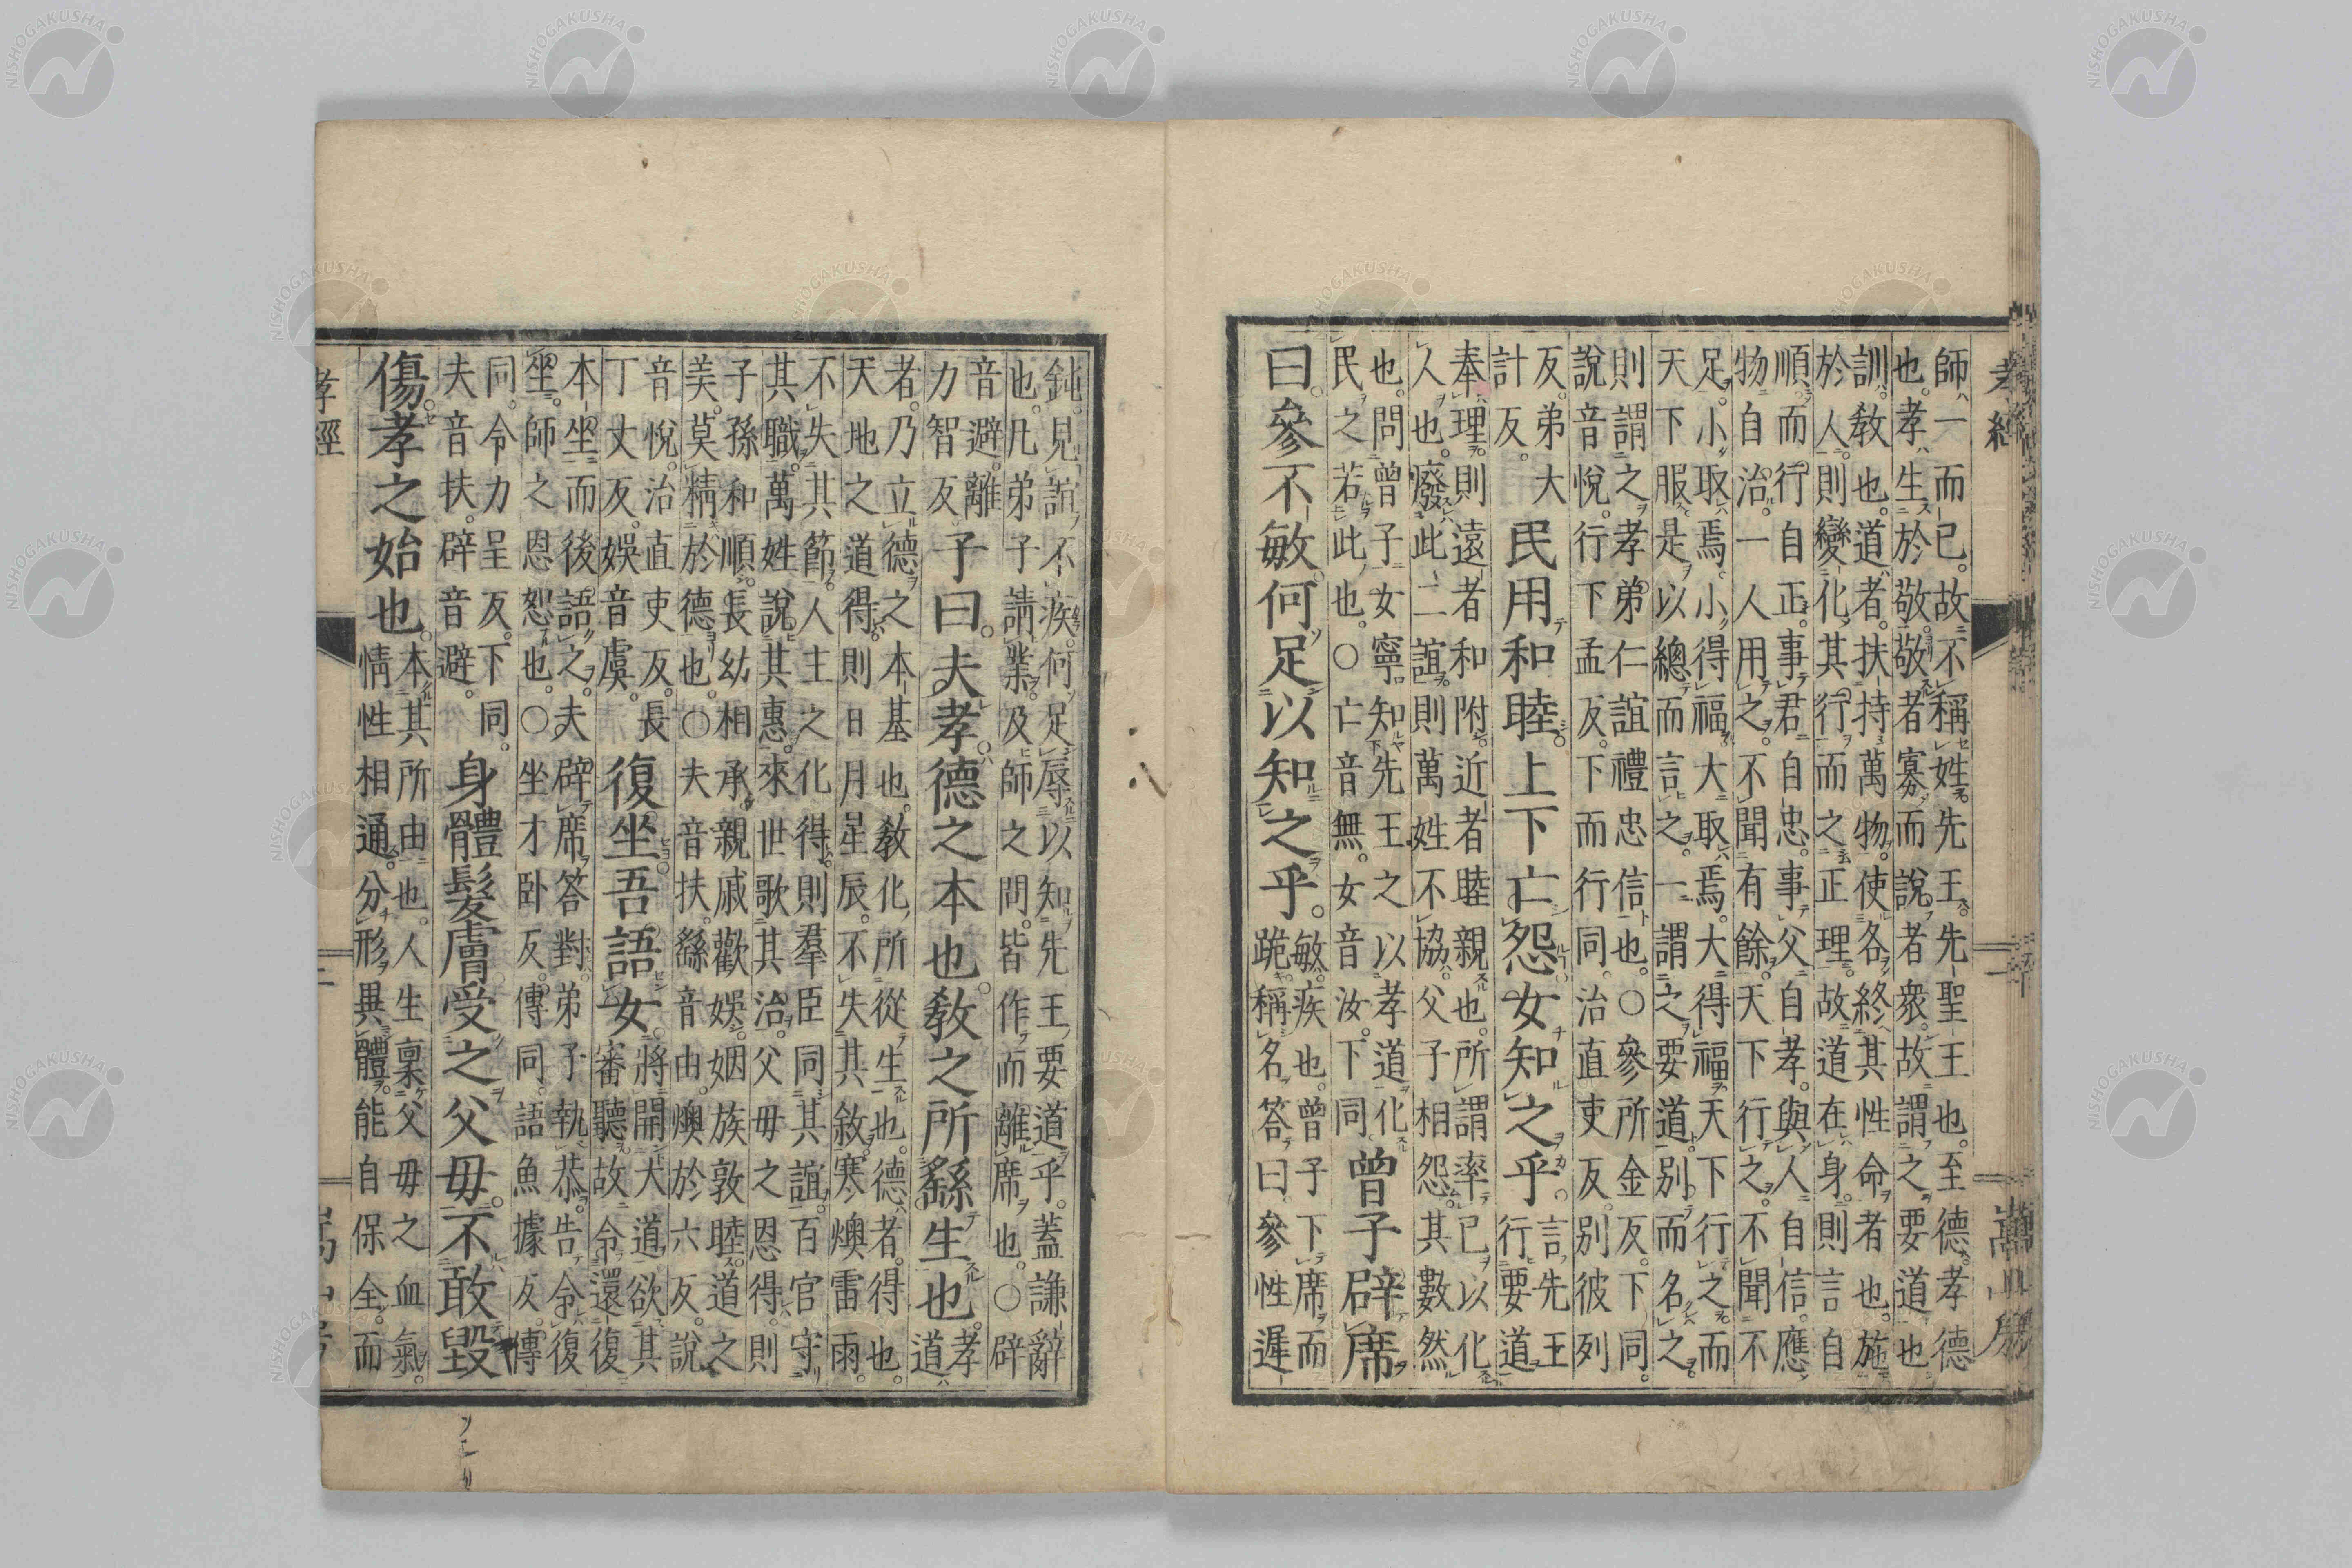 孝經
師一而已。故不稱姓。先王。先聖王也。至德。孝德
也。孝生於敬。敬者寡而說者衆。故謂之要道也
訓。教也。道者。扶持萬物。使各終其性命者也。施
於人。則變化其行而之正理。故道在身。則言自
順而行自正。事君自忠。事父自孝。與人自信。應
物自治。一人用之。不聞有餘。天下行之。不聞不
足。小取焉。小得福。大取焉。大得福。天下行之而
天下服。是以總而言之。一謂之要道。別而名之。
則謂之孝弟仁誼禮忠信也。○參所金反。下同。
說音悅。行下孟反。下而行同。治直吏反。別彼列
反。弟大
計反。
民用和睦。上下亡怨。女知之乎。
言先王
行要道
奉理。則遠者和附。近者睦親也。所謂率已以化
人也。廢此二誼。則萬姓不協。父子相怨。其數然
也。問曾子女寧知先王之以孝道化
民之若此也。○亡音無。女音汝。下同
曾子辟席
曰。參不敏。何足以知之乎。
敏。疾也。曾子下席而
跪。稱名答曰。參性遲
鈍。見誼不疾。何足辱以知先王要道乎。蓋謙辭
也。凡弟子請業。及師之問。皆作而離席也。○辟
音避。離
力智反
子曰。夫孝。德之本也。教之所繇生也。
孝
道
者。乃立德之本基也。教化所從生也。德者。得也。
天地之道得。則日月星辰。不失其敘。寒燠雷雨。
不失其節。人主之化得。則羣臣同其誼。百官守
其職。萬姓說其惠。來世歌其治。父母之恩得。則
子孫和順。長幼相承。親戚歡娛。姻族敦睦。道之
美。莫精於德也。○夫音扶。繇音由。燠於六反。說
音悅。治直吏反。長
丁丈反。娛音虞。
復坐吾語女。
將開大道。欲其
審聽。故令還復
本坐而後語之。夫辟席答對。弟子執恭。告令復
坐。師之恩恕也。○坐才卧反。傳同。語魚據反。傳
同。令力呈反。下同。
夫音扶。辟音避。
身體髮膚受之父母。不敢毀
傷。孝之始也。
本其所由也。人生稟父母之血氣。
情性相通。分形異體。能自保全。而
孝經